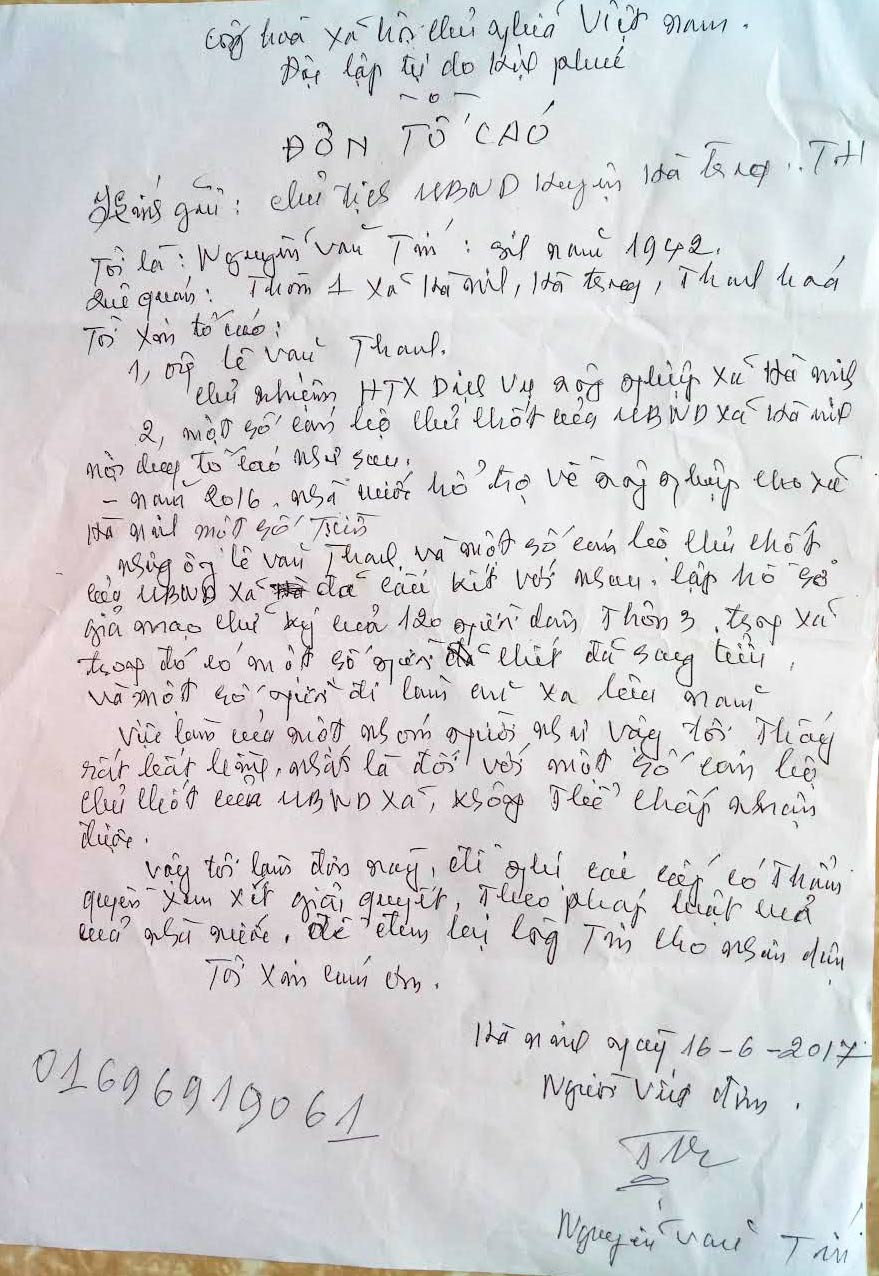 Cộng hoà xã hội chủ nghĩa Việt nam.
Độc lập tự do hạnh phúc
-o-
ĐƠN TỐ CÁO
Kính gửi: Chủ tịch UBND huyện Hà trung.. TH
Tôi là: Nguyễn văn Tín: sinh năm 1942.
Quê quán: Thôn 1 xã Hà ninh, Hà trung, Thanh hoá
Tôi xin tố cáo:
1, ông Lê văn Thanh.
chủ nhiệm HTX Dịch vụ nông nghiệp xã Hà ninh
2, một số cán bộ chủ chốt của UBND xã Hà ninh
nội dung tố cáo như sau:
- năm 2016. nhà nước hỗ trợ về nông nghiệp cho xã
Hà ninh một số tiền
nhưng ông lê văn Thanh. và một số cán bộ chủ chốt
của UBND xã đã cấu kết với nhau. lập hồ sơ
giả mạo chữ ký của 120 người dân Thôn 3. trong xã
trong đó có một số người chết đã sang tiểu,
và một số người đi làm ăn xa lâu năm
Việc làm của một nhóm người như vậy tôi thấy
rất bất bình, nhất là đối với một số cán bộ
chủ chốt của UBND xã, không thể chấp nhận
được.
Vậy tôi làm đơn này, đề nghị các cấp có thẩm
quyền xem xét giải quyết, theo pháp luật của
của nhà nước. để đem lại lòng tin cho nhân dân
Tôi xin cám ơn.
Hà ninh ngày 16-6-2017
Người viết đơn.
01696919061
Nguyễn văn Tín